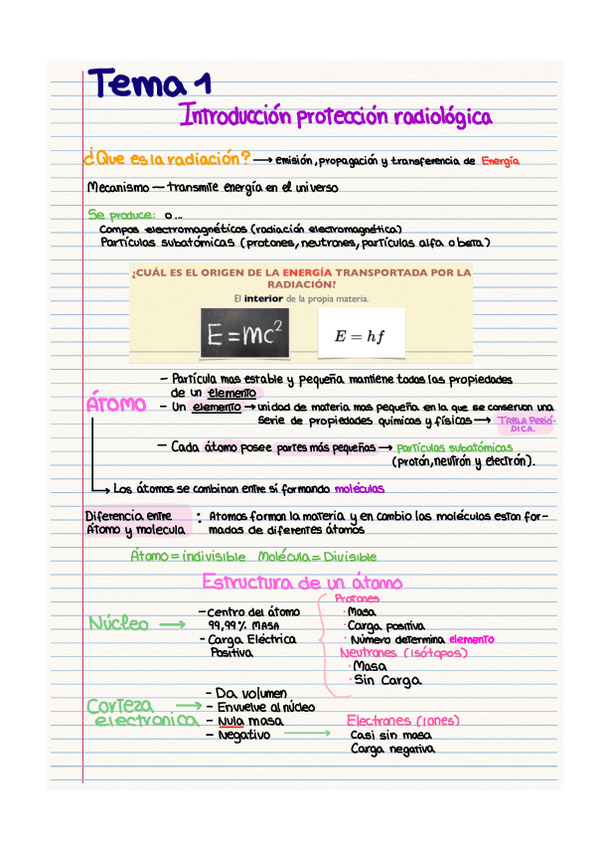 Tema 1
Introducción protección radiológica
¿Que es la radiación? → emisión, propagación y transferencia de Energía
Mecanismo — transmite energía en el universo
Se produce: o...
Campos electromagnéticos (radiación electromagnética)
Partículas subatómicas (protones, neutrones, partículas alfa o beta)
¿CUÁL ES EL ORIGEN DE LA ENERGÍA TRANSPORTADA POR LA
RADIACIÓN?
El interior de la propia materia.
E=mc²
E = hf
ÁTOMO
- Partícula mas estable y pequeña mantiene todas las propiedades
de un elemento
- Un elemento → unidad de materia mas pequeña en la que se conservan una
serie de propiedades quimicas y físicas → TABLA PERIÓ-
DICA.
- Cada átomo posee partes más pequeñas → partículas subatómicas
(protón, neutrón y electrón).
→ Los átomos se combinan entre sí formando moléculas
Diferencia entre
Átomo y molecula : Atomos forman la materia y en cambio las moléculas estan for-
madas de diferentes átomos
Átomo = indivisible Molécula = Divisible
Estructura de un átomo
Núcleo →
- Centro del átomo
99,99% MASA
- Carga Eléctrica
Positiva
Protones
· Masa
· Carga positiva
· Número determina elemento
Neutrones (isótopos)
· Masa
· Sin Carga
Corteza
electronica →
- Da volumen
- Envuelve al núcleo
- Nula masa
- Negativo →
Electrones (Iones)
Casi sin masa
Carga negativa